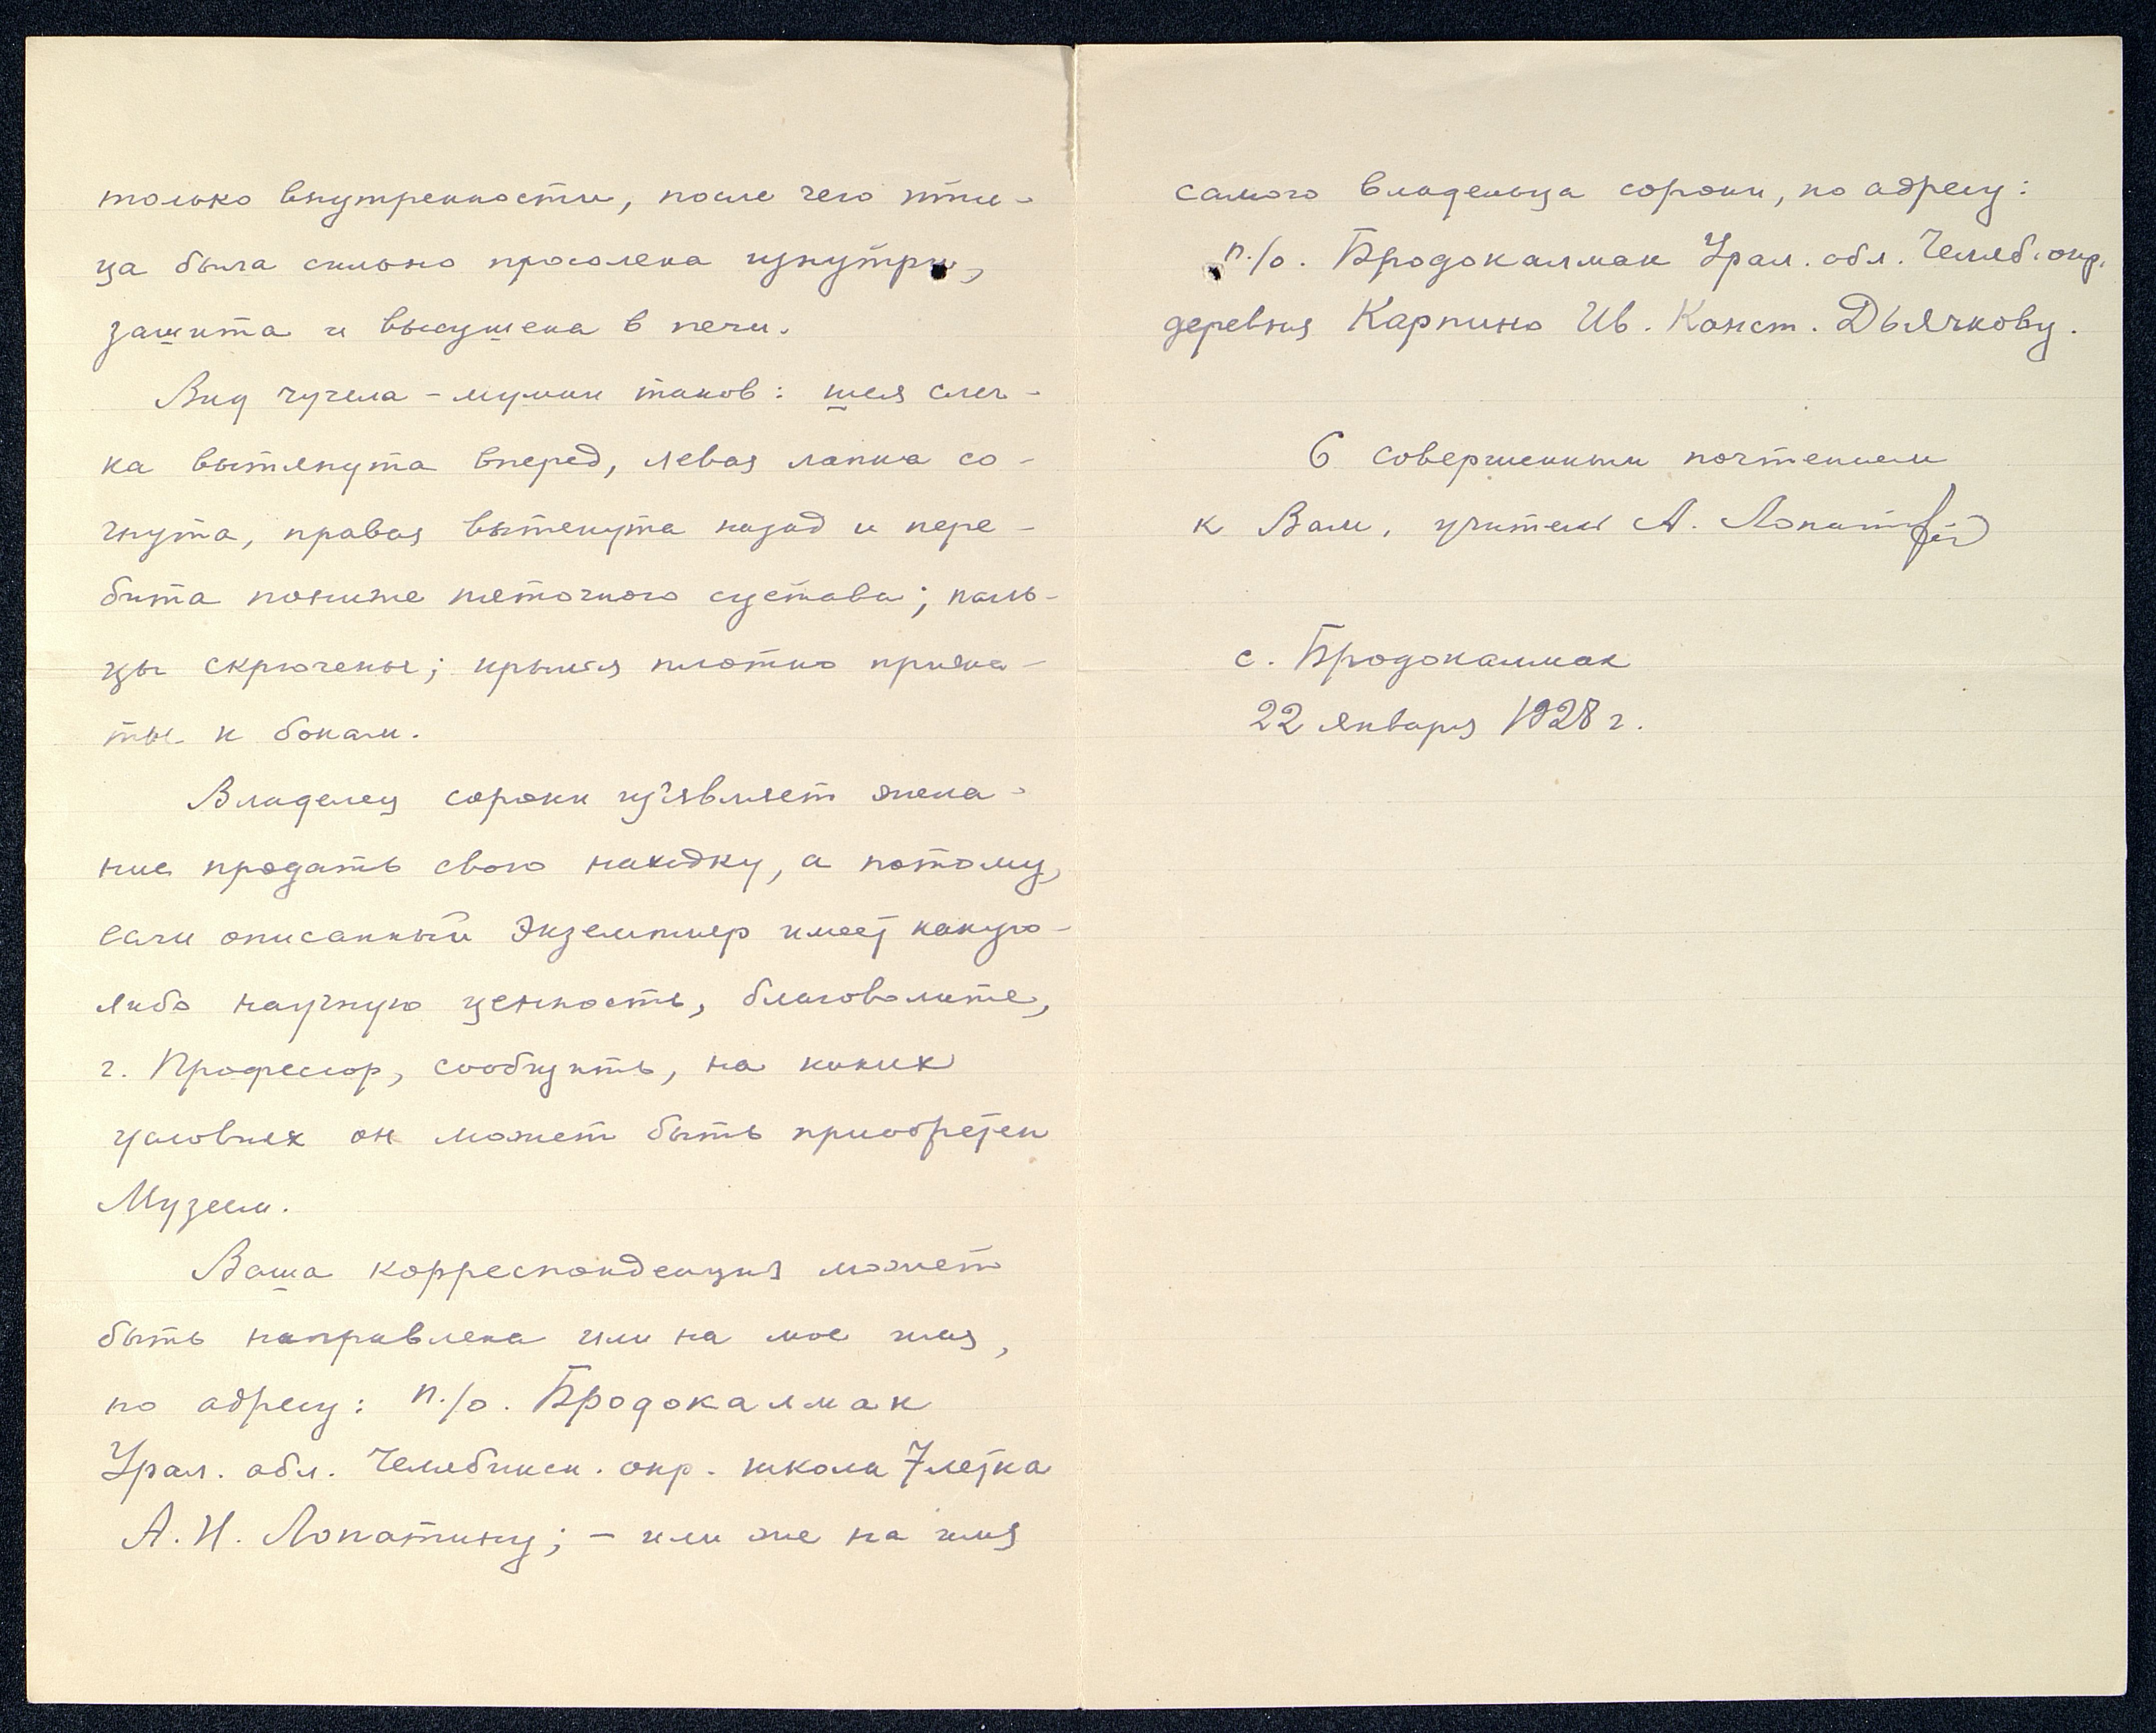 только внутренности, после чего пти-
ца была сильно просолена изнутри,
зашита и высушена в печи.
Вид чучела - мумии таков: шея слег-
ка вытянута вперед, левая лапка со-
гнута, правая вытенута назад и пере-
бита пониже пяточного сустава; паль-
цы скрючены; крылья плотно прижа-
ты к бокам.
Владелец сороки из'являет жела-
ние продать свою находку, а потому,
если описанный экземпляр имеет какую-
либо научную ценность, благоволите,
г. Профессор, сообщить, на каких
условиях он может быть приобретен
Музеем.
Ваша корреспонденция может
быть направлена или на мое имя,
по адресу: п./о. Бродокалмак
Урал. обл. Челябинск. окр. школа 7летка
А. Н. Лопатину; - или же на имя
самого владельца сороки, по адресу:
п./о. Бродокалмак Урал. обл. Челяб. окр.
деревня Карпино Ив. Конст. Дьячкову.
С совершенным почтением
к Вам, учитель А. Лопатин
с. Бродокалмак
22 января 1928 г.